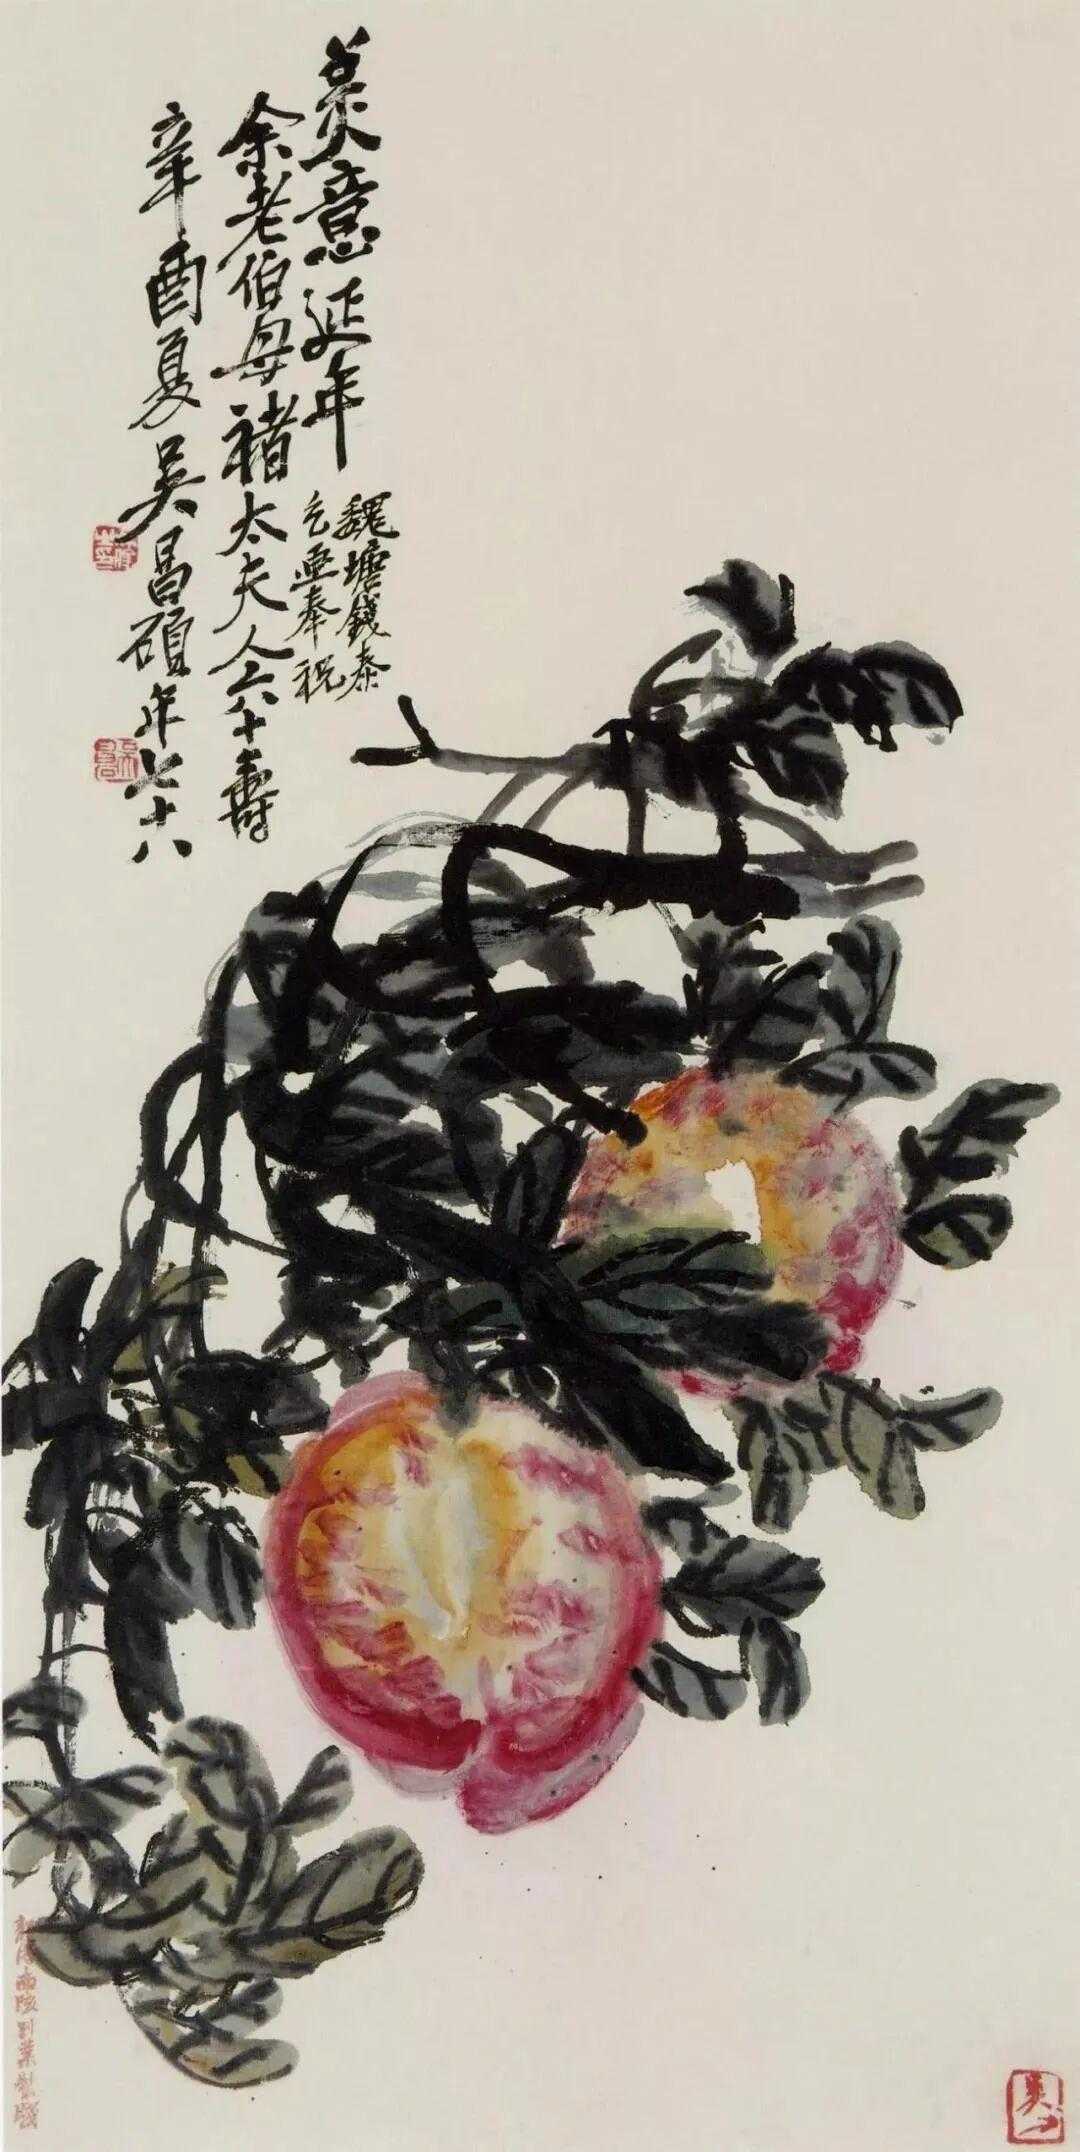 美意延年
魏塘錢泰
乞画奉祝
余老伯母褚太夫人六十壽
辛酉夏吳昌碩年七十八